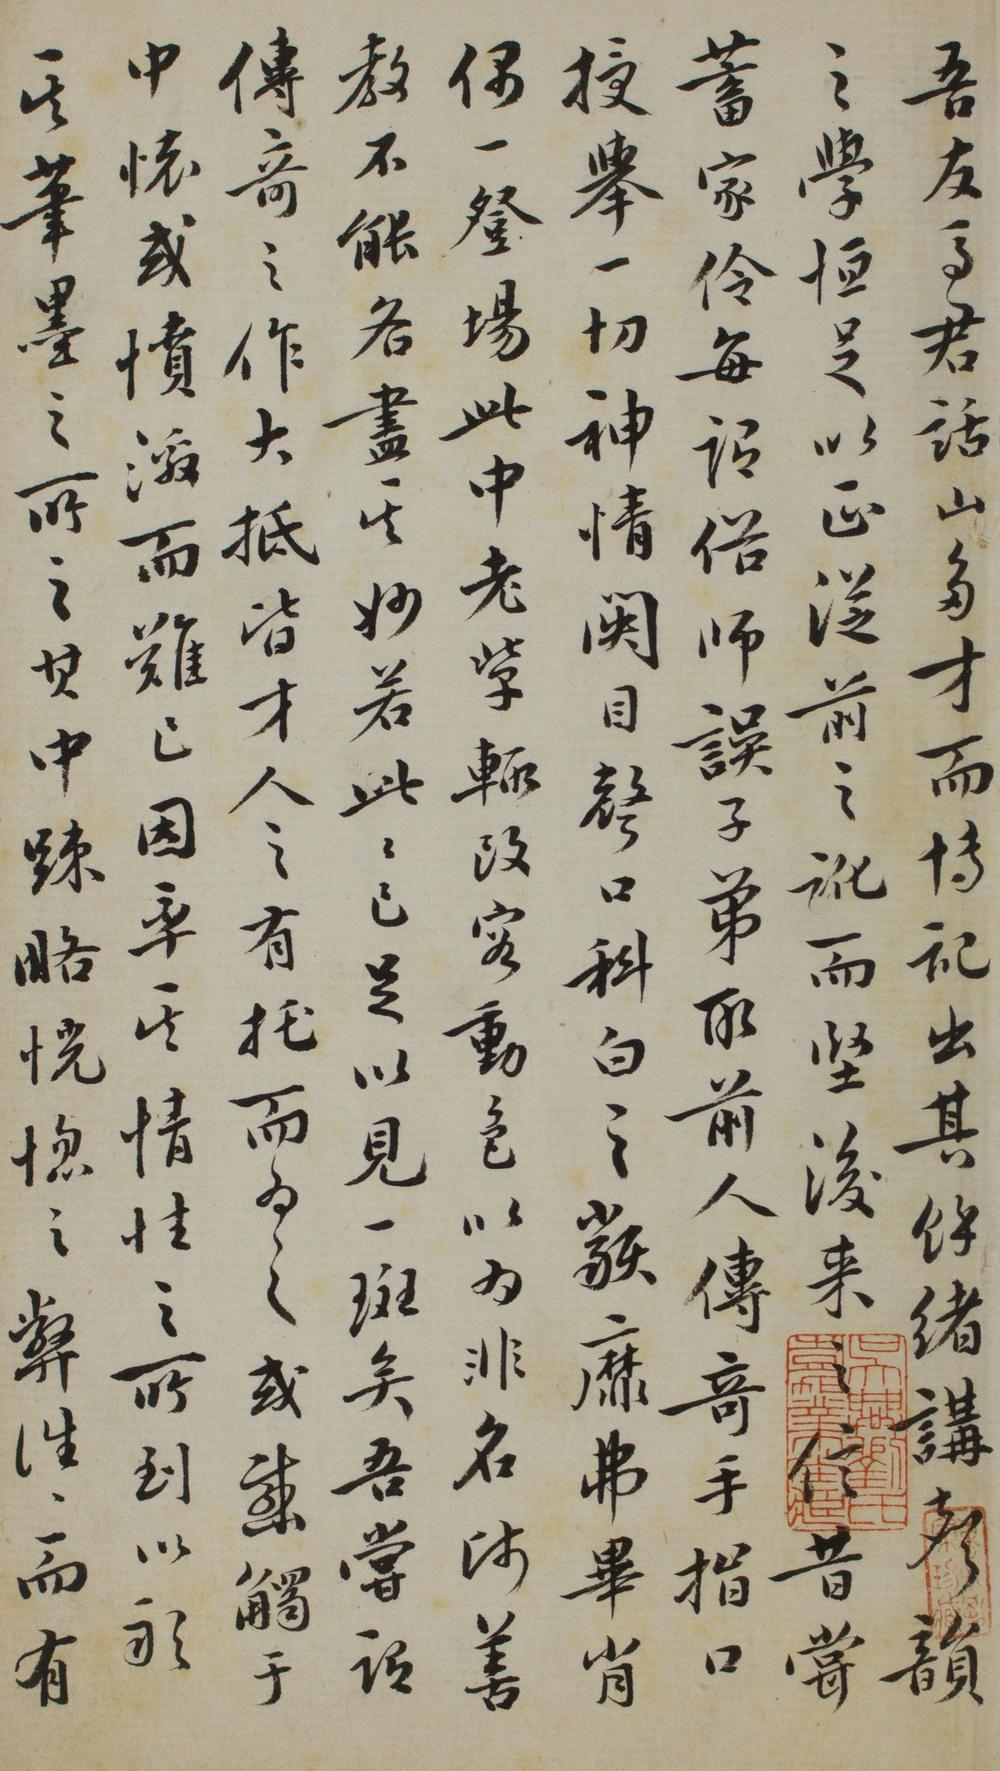 吾友馮君話山多才而博記出其餘緒講声韻
之學恒足以正從前之訛而堅後来之信昔嘗
蓄家伶每詔俗師誤子弟取前人傳奇手指口
授舉一切神情関目聲口科白之類靡弗畢肖
偶一登場此中老輩輒改容動色以为非名师善
教不能各盡其妙若此此已足以見一斑矣吾嘗詔
傳奇之作大抵皆才人之有托而为之或感觸于
中懷或憤激而難已因率其情性之所到以形
其筆墨之所之其中踈略恍惚之弊往往而有